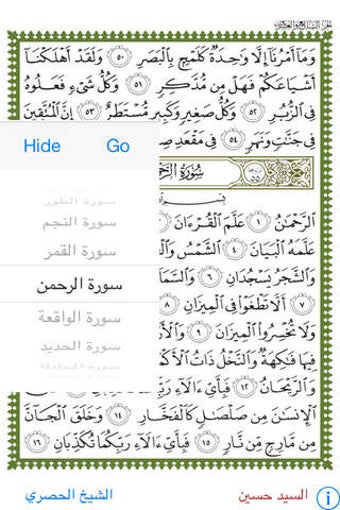 الجزء السابع والعشرون
وَمَآ أَمْرُنَآ إِلَّا وَٰحِدَةٌ كَلَمْحٍۭ بِٱلْبَصَرِ ٥٠ وَلَقَدْ أَهْلَكْنَآ
أَشْيَاعَكُمْ فَهَلْ مِن مُّدَّكِرٍ ٥١ وَكُلُّ شَىْءٍ فَعَلُوهُ
فِى ٱلزُّبُرِ ٥٢ وَكُلُّ صَغِيرٍ وَكَبِيرٍ مُّسْتَطَرٌ ٥٣ إِنَّ ٱلْمُتَّقِينَ
فِى جَنَّٰتٍ وَنَهَرٍ ٥٤ فِى مَقْعَدِ
Hide Go
سُورَةُ ٱلرَّحْ
ٱلرَّحْمَٰنُ ١ عَلَّمَ ٱلْقُرْءَانَ
عَلَّمَهُ ٱلْبَيَانَ ٤ ٱلشَّمْسُ
وَٱلشَّجَرُ يَسْجُدَانِ ٦ وَٱلسَّمَآ
٧ أَلَّا تَطْغَوْا۟ فِى ٱلْمِيزَانِ
وَلَا تُخْسِرُوا۟ ٱلْمِيزَانَ ٩
فِيهَا فَٰكِهَةٌ وَٱلنَّخْلُ ذَاتُ ٱلْأَكْ
وَٱلرَّيْحَانُ ١٢ فَبِأَىِّ ءَالَآءِ رَبِّكُمَا
ٱلْإِنسَٰنَ مِن صَلْصَٰلٍ كَٱلْفَخَّارِ ١٤ وَخَلَقَ ٱلْجَآنَّ
مِن مَّارِجٍ مِّن نَّارٍ ١٥ فَبِأَىِّ ءَالَآءِ رَبِّكُمَا تُكَذِّبَانِ ١٦
سورة الطور
سورة النجم
سورة القمر
سورة الرحمن
سورة الواقعة
سورة الحديد
سورة المجادلة
السيد حسين
الشيخ الحصري